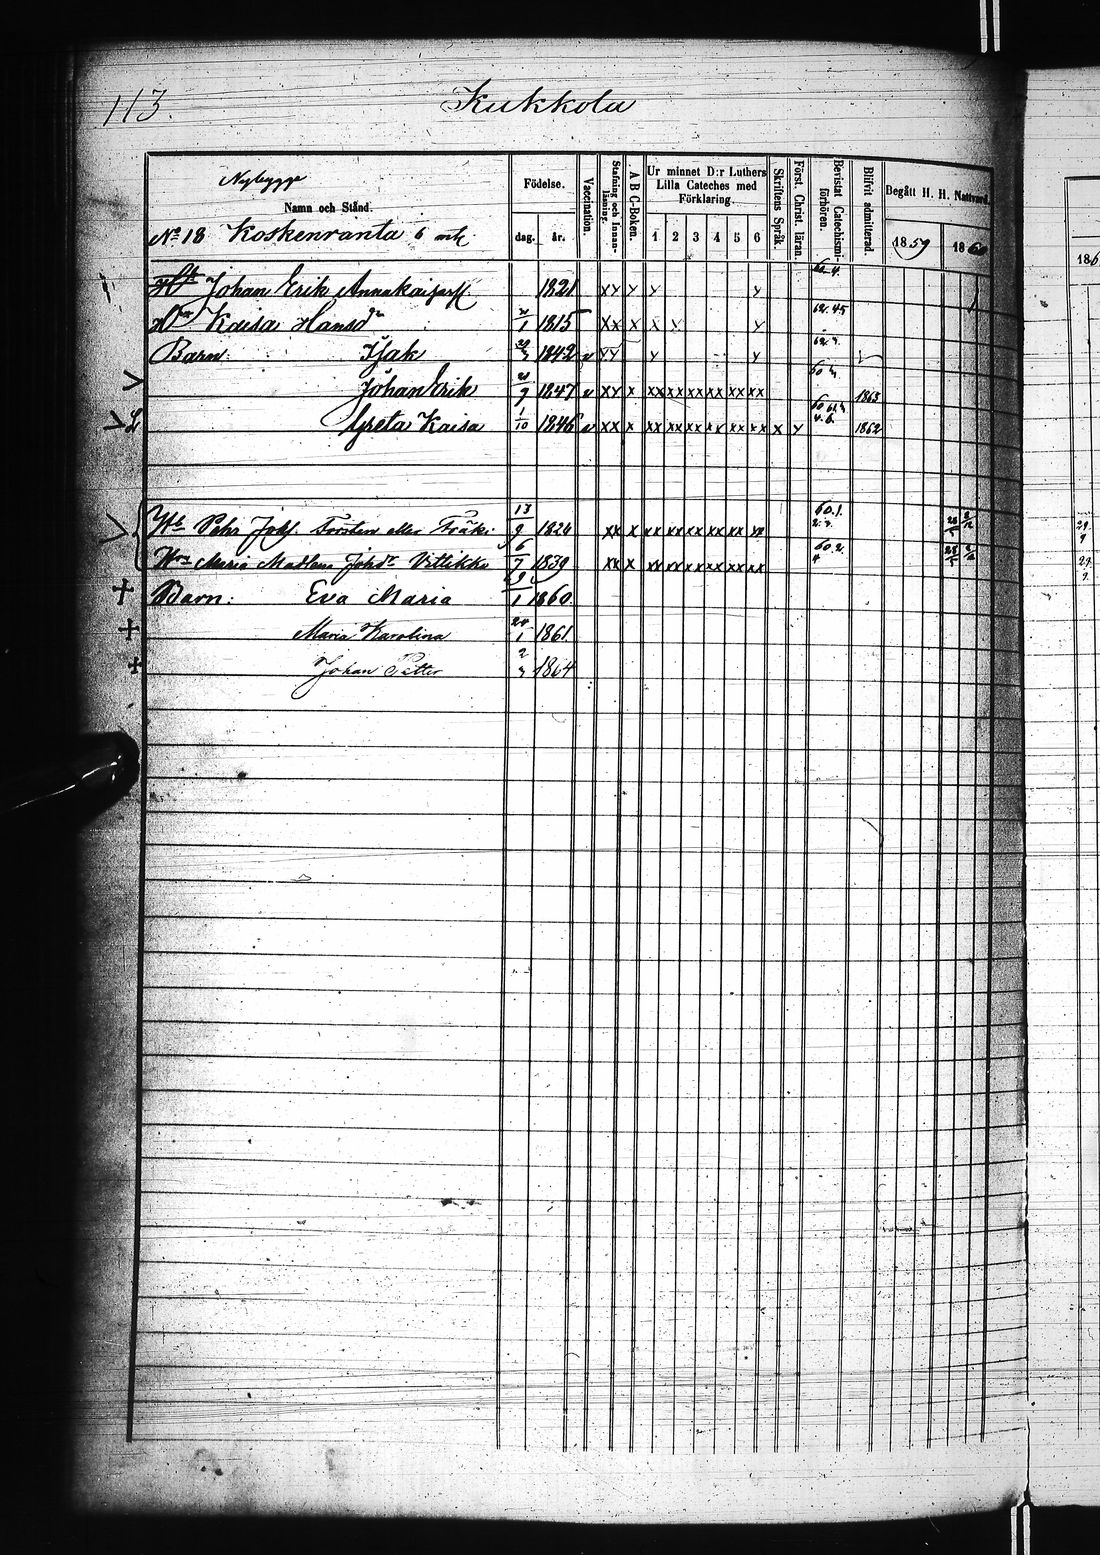 113. Kukkola
Nybygge
Namn och Stånd.
Födelse.
dag. år.
Vaccination.
Stafning och Innanläsning.
A B C-Boken.
Ur minnet D:r Luthers Lilla Cateches med Förklaring.
1 2 3 4 5 6
Skriftens Språk.
Först. Christ. läran.
Bevistat Catechismiförhören.
Blifvit admitterad.
Begått H. H. Nattvard.
1859 1860
186
No 18 Koskenranta 6 mtl
Johan Erik 1821 xy y y y
Kaisa Hansdr 1815 xx x x y y
Barn: Isak 1842 v yy y y
Johan Erik 1847 v xy x xx xx xx xx xx xx 1863
Greta Kaisa 1/10 1846 v xx x xx xx xx xx xx xx x y 1862
Pehr Johs. Forsten eller Fräki 13/9 1824 xx x xx xx xx xx xx xx 60.1.
Maria Madlena Johsdr Vittikko 6/7 1839 xx x xx xx xx xx xx xx 60.2.
+ Barn: Eva Maria 1860.
+ Maria Karolina 24/1 1861
+ Johan Petter 1864